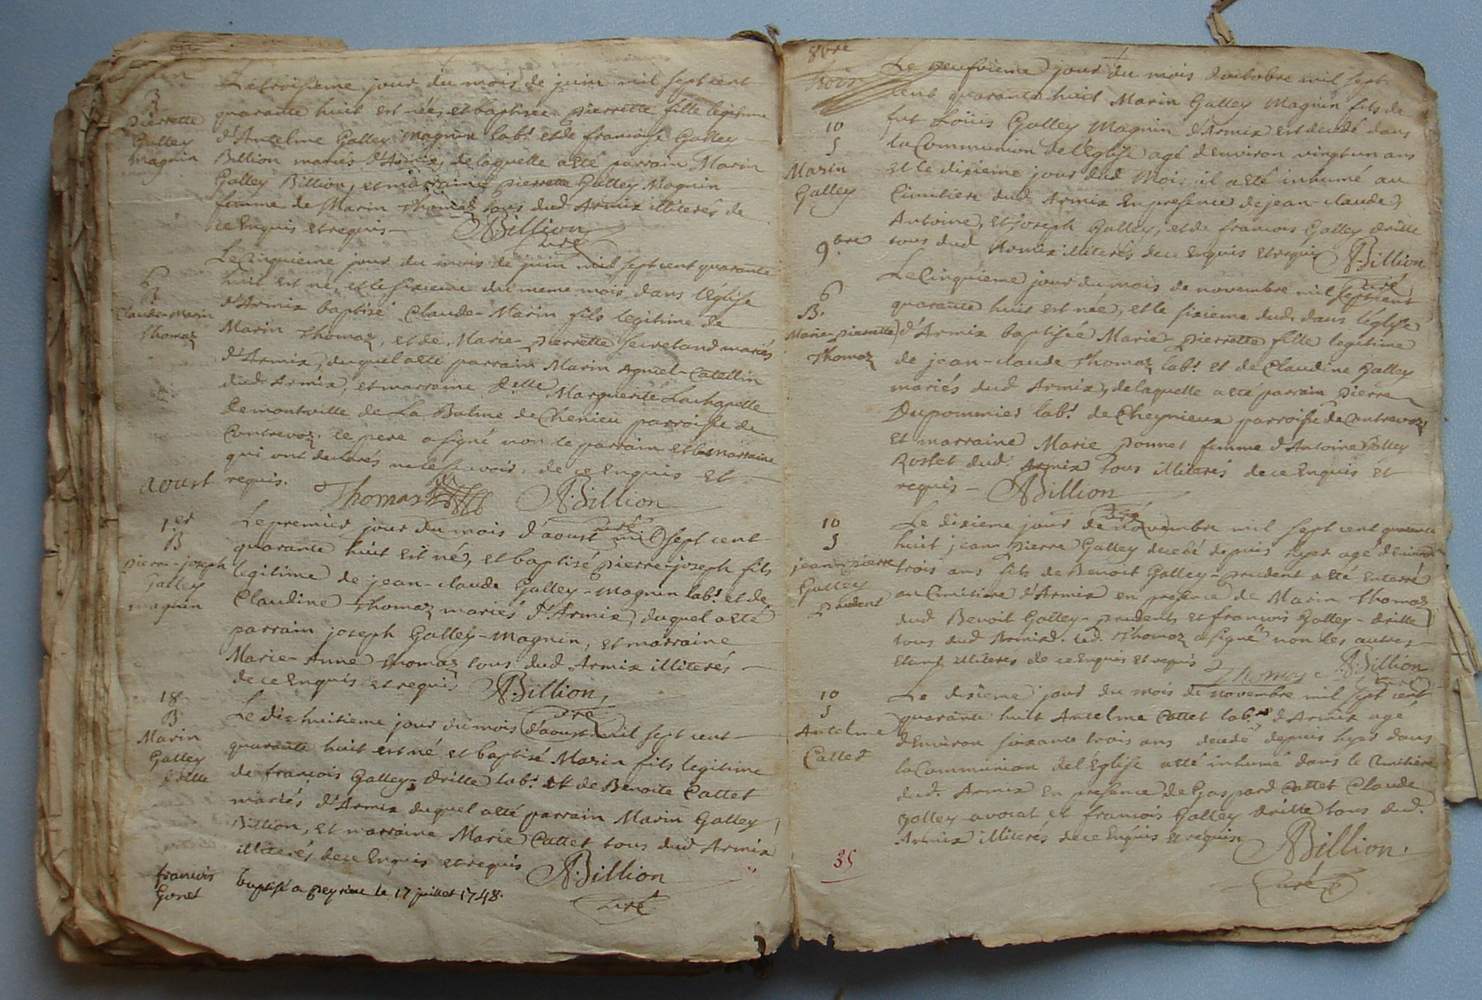 3
B
pierrette
Galley
magnin
Le troisieme jour du mois de juin mil sept cent
quarante huit est née, et baptisée pierrette fille legitime
d'Antelme Galley magnin labr. et de francoise Galley
Billion mariés d'Armix, de laquelle a eté parrain Marin
Galley Billion, et marraine pierrette Galley Magnin
femme de Marin Thomaz tous dud. Armix illiterés de
ce Enquis et requis
A. Billion
curé
6
B
Claude-Marin
Thomaz
Le Cinquieme jour du mois de juin mil sept cent quarante
huit est né, et le sixieme du meme mois dans l'église
d'Armix baptisé Claude-Marin fils legitime de
Marin Thomaz, et de Marie-pierrette secretand mariés
d'Armix, duquel a eté parrain Marin Catellin
dud. Armix, et marraine Delle Marguerite Lachapelle
Demontville de La Balme de Chenieu parroisse de
Contrevoz. le pere a signé non le parrain et la marraine
qui ont declarés ne le scavoir, de ce Enquis et
requis.
Thomas A. Billion
curé
aoust
1er
B
pierre-joseph
Galley
magnin
Le premier jour du mois d'aoust mil sept cent
quarante huit est né, et baptisé pierre-joseph fils
legitime de jean-claude Galley-Magnin labr. et de
Claudine Thomaz mariés d'Armix, duquel a eté
parrain joseph Galley-Magnin, et marraine
Marie-Anne Thomaz tous dud. Armix illiterés
de ce Enquis et requis
A. Billion
curé
18
B
Marin
Galley
drille
Le dix huitieme jour du mois d'aoust mil sept cent
quarante huit est né et baptisé Marin fils legitime
de francois Galley-drille labr. et de Benoite Cattet
mariés d'Armix duquel a eté parrain Marin Galley
Billion, et marraine Marie Cattet tous dud. Armix
illiterés de ce Enquis et requis
A. Billion
curé
francois
Gonet
baptisé a peyrieu le 17 juillet 1748.
8bre
10
S
Marin
Galley
Le neufvieme jour du mois d'octobre mil sept
cent quarante huit Marin Galley Magnin fils de
fut Loüis Galley Magnin d'Armix est decedé dans
la Communion de l'Eglise agé d'environ vingt un ans
et le dixieme jour dud. Mois il a eté inhumé au
Cimitiere dud. Armix En presence de jean-claude,
Antoine, et joseph Galley, et de francois Galley drille
tous dud. Armix illiterés de ce Enquis et requis
A. Billion
curé
9bre
6
B.
Marie-pierrette
Thomaz
Le Cinquieme jour du mois de novembre mil sept cent
quarante huit est née, et le sixieme dud. dans l'église
d'Armix baptisée Marie-pierrette fille legitime
de jean-claude Thomaz labr. et de Claudine Galley
mariés dud. Armix, de laquelle a eté parrain pierre
Dupommier labr. de Cheynieux parroisse de Contrevoz
et marraine Marie ponnet femme d'Antoine Galley
Rosset dud. Armix tous illiterés de ce Enquis et
requis
A. Billion
curé
10
S
jean-pierre
Galley
prudent
Le dixieme jour de novembre mil sept cent quarante
huit jean pierre Galley decedé depuis hyer agé d'environ
trois ans fils de Benoit Galley-prudent a eté enterré
au Cimitiere d'Armix en presence de Marin Thomaz
dud. Benoit Galley-prudent, et francois Galley-drille
tous dud. Armix. led. Thomaz a signé non les autres
Etant illiterés de ce Enquis et requis
Thomas A. Billion
curé
10
S
Antelme
Cattet
Le dixieme jour du mois de novembre mil sept cent
quarante huit Antelme Cattet labr. d'Armix agé
d'Environ soixante trois ans decedé depuis hyer dans
la Communion de l'Eglise a eté inhumé dans le Cimitiere
dud. Armix en presence de Gaspard Cattet Claude
Galley avocat et francois Galley drille tous dud.
Armix illiterés de ce Enquis et requis
A. Billion.
curé
35